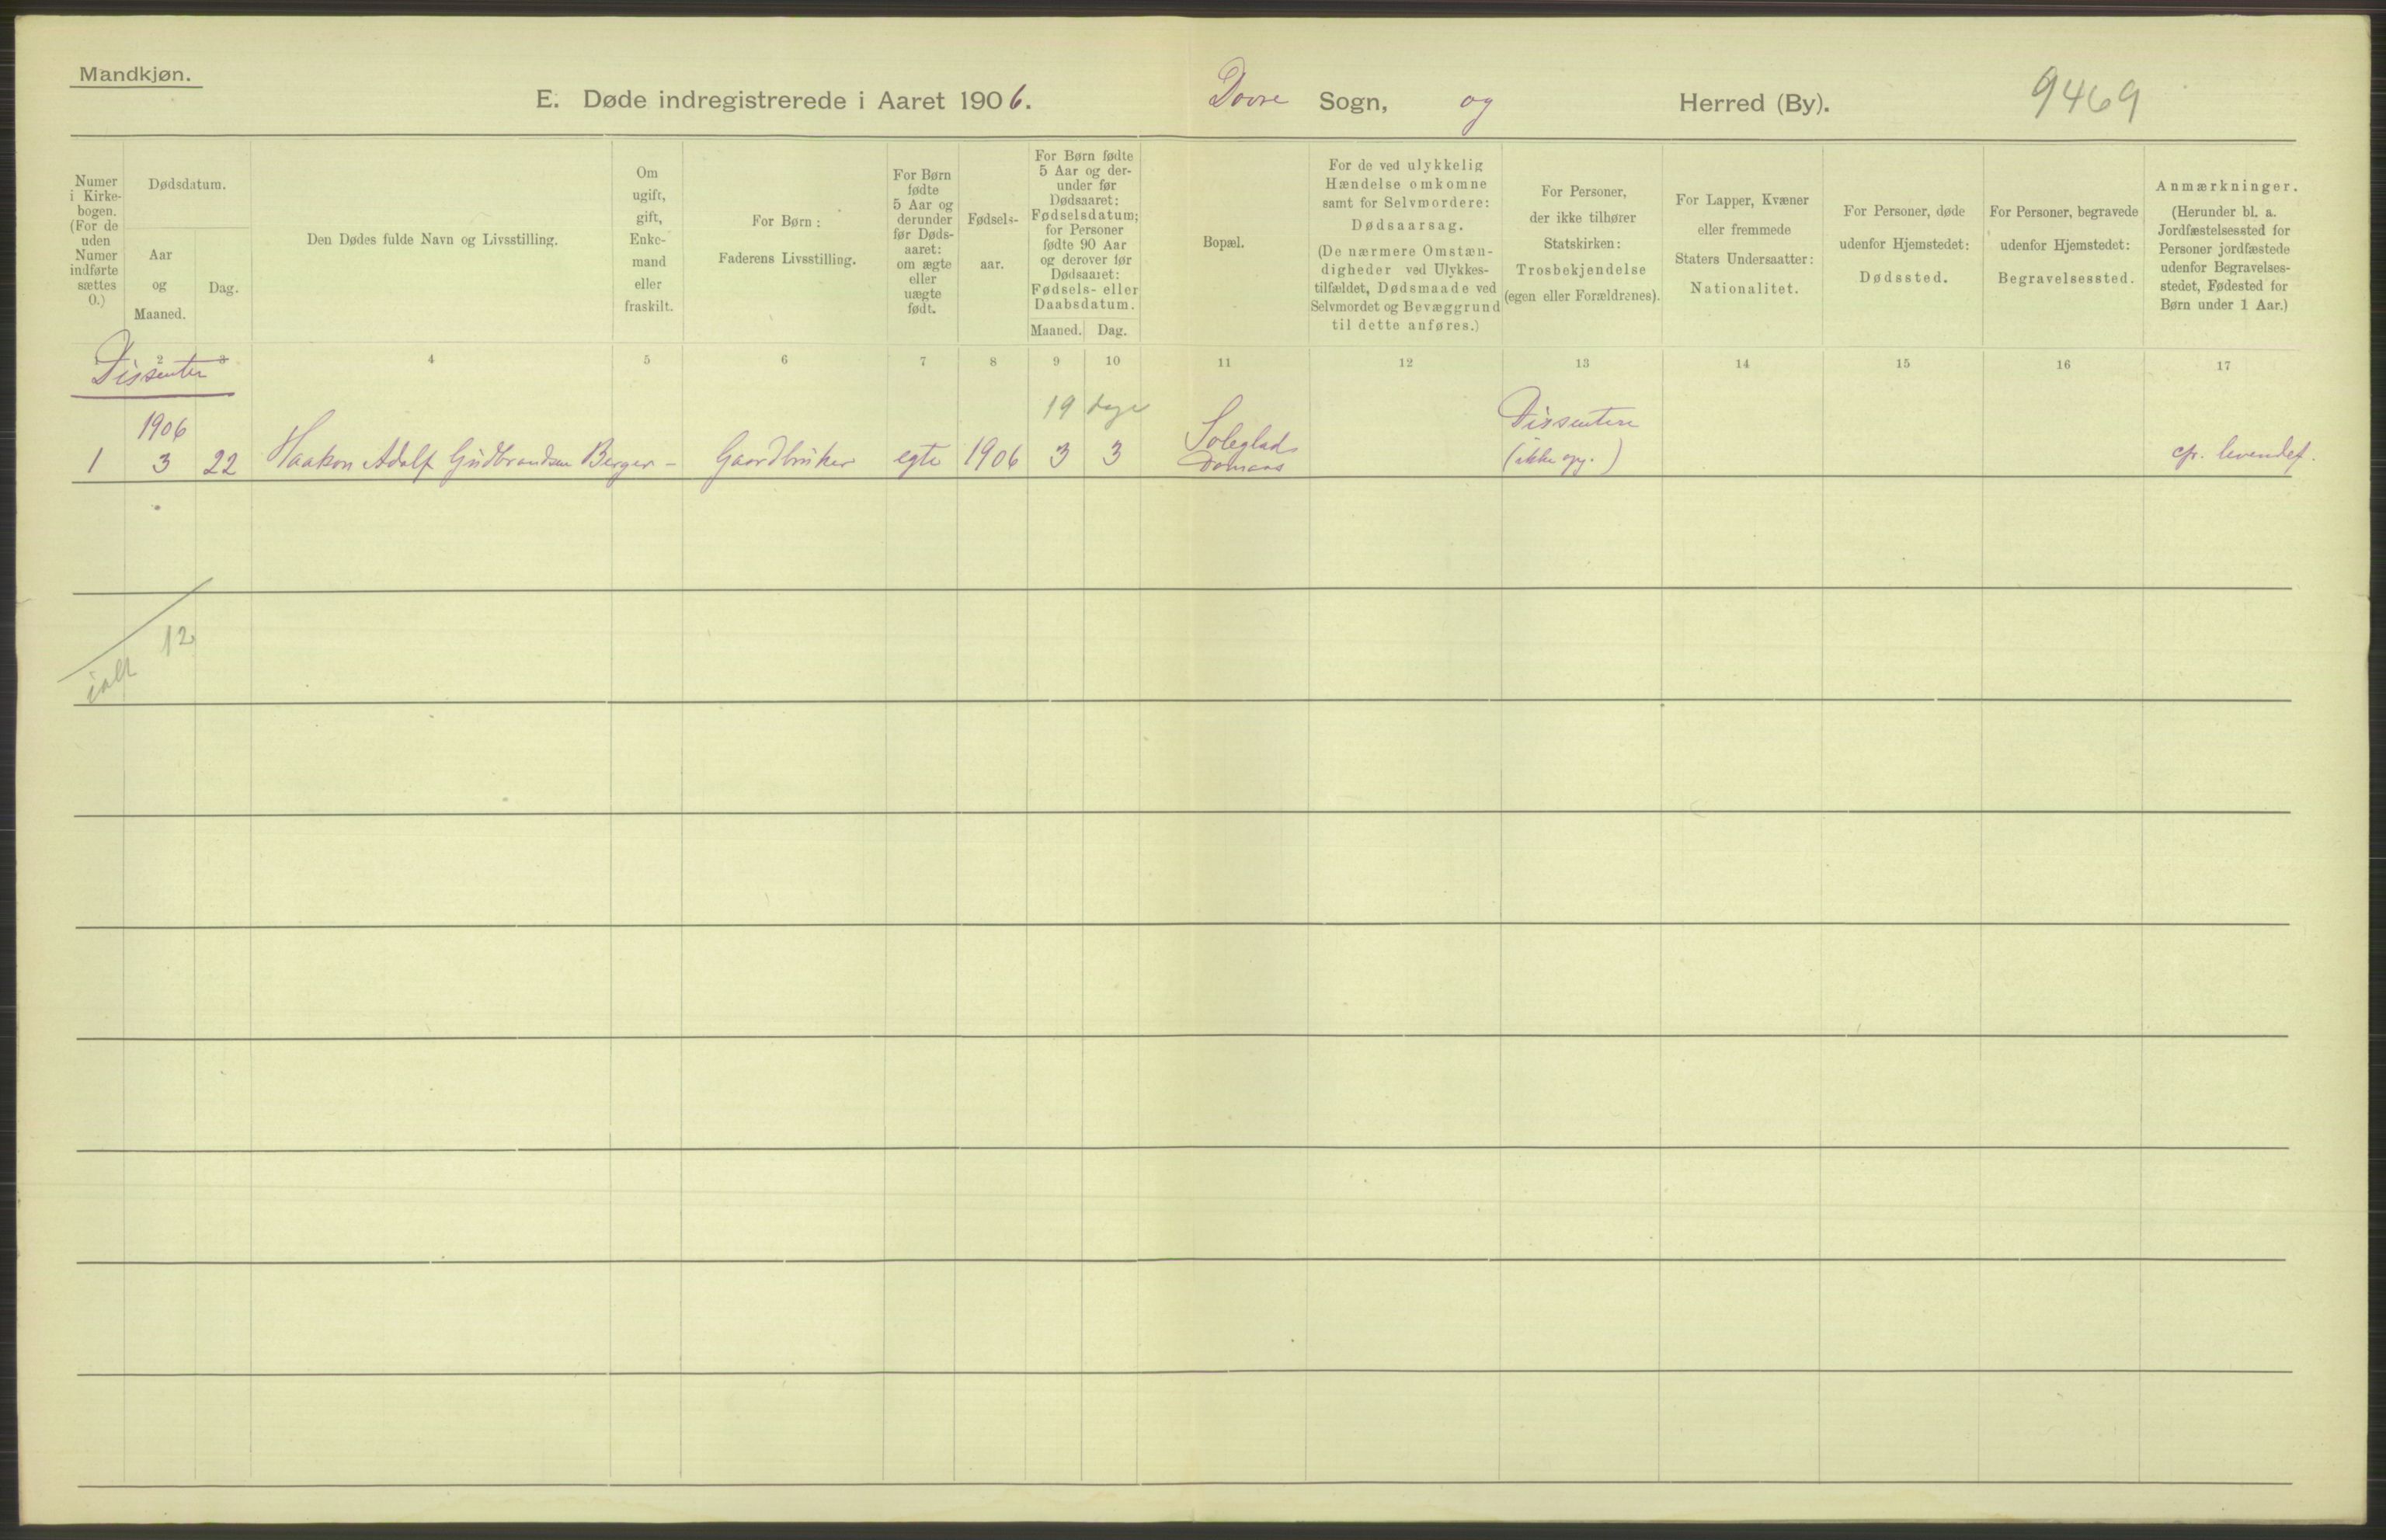 Mandkjøn.
E. Døde indregistrerede i Aaret 1906. Dovre Sogn, og Herred (By). 9469
Numer
i Kirke-
bogen.
(For de
uden
Numer
indførte
sættes
0.)
Dødsdatum.
Aar
og
Maaned.
Dag.
Den Dødes fulde Navn og Livsstilling.
Om
ugift,
gift,
Enke-
mand
eller
fraskilt.
For Børn:
Faderens Livsstilling.
For Børn
fødte
5 Aar og
derunder
før Døds-
aaret:
om ægte
eller
uægte
født.
Fødsels-
aar.
For Børn fødte
5 Aar og der-
under før
Dødsaaret:
Fødselsdatum;
for Personer
fødte 90 Aar
og derover før
Dødsaaret:
Fødsels- eller
Daabsdatum.
Maaned. Dag.
Bopæl.
For de ved ulykkelig
Hændelse omkomne
samt for Selvmordere:
Dødsaarsag.
(De nærmere Omstæn-
digheder ved Ulykkes-
tilfældet, Dødsmaade ved
Selvmordet og Bevæggrund
til dette anføres.)
For Personer,
der ikke tilhører
Statskirken:
Trosbekjendelse
(egen eller Forældrenes).
For Lapper, Kvæner
eller fremmede
Staters Undersaatter:
Nationalitet.
For Personer, døde
udenfor Hjemstedet:
Dødssted.
For Personer, begravede
udenfor Hjemstedet:
Begravelsessted.
Anmærkninger.
(Herunder bl. a.
Jordfæstelsessted for
Personer jordfæstede
udenfor Begravelses-
stedet, Fødested for
Børn under 1 Aar.)
2 3 4 5 6 7 8 9 10 11 12 13 14 15 16 17
Dissenter
19 dage
1906 Dissentere
1 3 22 Haakon Adolf Gudbrandsen Berger - Gaardbruker egte 1906 3 3 Soleglad Domaas (ikke opg.) cfr. levendef.
12
ialt